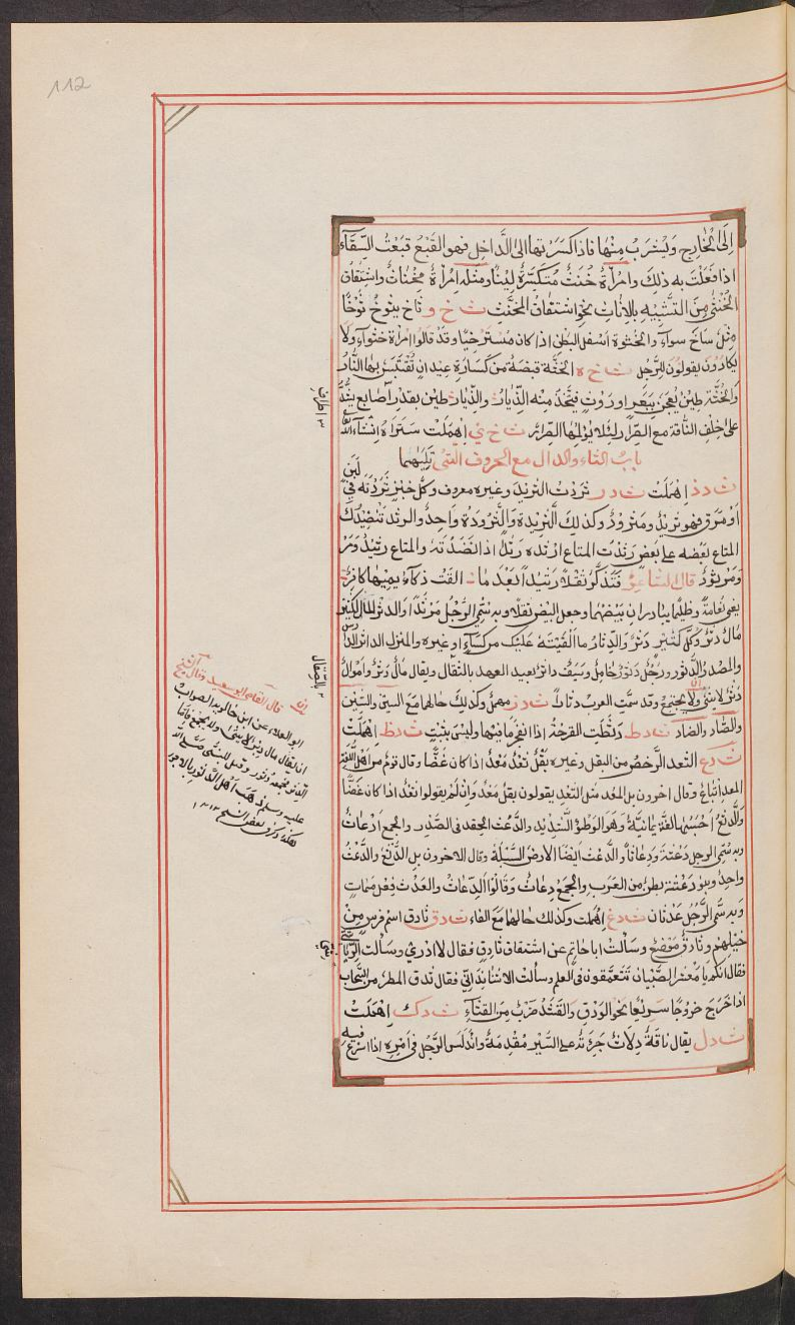 112
إلى الخارج ويشرب منها فاذا كسرتها الى الداخل فهو القبع قبعت السقآء
اذا فعلت به ذلك وامرأة خنث متكسرة لينا ومثله امرأة مخناث واشتقاق
الخنثى من التشبيه بالاناث نحو اشتقاق المخنث ث خ و ثاخ يثوخ ثوخا
مثل ساخ سوآء والخثوة اسفل البطن اذا كان مسترخيا وقد قالوا امرأة خثوآء ولا
يكادون يقولون للرجل ث خ ه الخثة قبضة من كسارة عيدان تقتبس بها النار
والخثة طين يعجن ببعر او روث فيتخذ منه الذيار والذيار طين بقدر اصابع يشد
على خلف الناقة مع الصرار لئلا يؤلمها الصرار ث خ ي اهملت ستراه انشآء الله
باب الثاء والدال مع الحروف التى تليهما
ث د ذ اهملت ث د ر ثردت الثريد وغيره معروف وكل خبز ثردته فى لبن
او مرق فهو ثريد ومثرود وكذلك الثريدة والثرودة واحد والرثد تنضيدك
المتاع بعضه على بعض رثدت المتاع ارثده رثدا اذا نضدته والمتاع رثيد ومر
ومرثود قال الشاعر فتذكرا ثقلا رثيدا بعد ما القت ذكآء يمينها فى كافر
يعنى نعامة وظليما يبادران بيضهما وجعل البيض ثقلا وبه سمي الرجل مرثدا والدثر المال الكثير
مال دثر وكل كثير دثر والدثار ما القيته عليك من كسآء او غيره والمنزل الداثر الدارس
والمصدر الدثور ورجل دثور خامل وسيف داثر بعيد العهد بالثقال ويقال مال دثر واموال
دثر لا يثنى ولا يجمع وقد سمت العرب دثارا ث د ز مهمل وكذلك حالهما مع السين والشين
والصاد والضاد ث د ط دثطت القرحة اذا انفجر ما فيها وليس بثبت ث د ظ اهملت
ث د ع الثعد الرخص من البقل وغيره بقل ثعد معد اذا كان غضا وقال قوم من اهل اللغة
المعد اتباع وقال اخرون بل المعد مثل الثعد يقولون بقل معد وان لم يقولوا ثعد اذا كان غضا
والدثع احسبها لغة يمانية وهو الوطؤ الشديد والدعث الحقد فى الصدر والجمع ادعاث
وبه سمي الرجل دعثة ودعاثا والدعث ايضا الارض السهلة وقال الاخرون بل الدثع والدعث
واحد وبنو دعثة بطن من العرب والجمع دعاث وقالوا الدعاث والعدث فعل ممات
وبه سمي الرجل عدثان ث د غ اهملت وكذلك حالهما مع الفاء ث د ق ثادق اسم فرس من
خيلهم وثادق موضع وسألت اباحاتم عن اشتقاق ثادق فقال لا ادري وسألت الرياشى
فقال انكم يا معشر الصبيان تتعمقون فى العلم وسألت الاشنانداني فقال ثدق المطر من السحاب
اذا خرج خروجا سريعا نحو الودق والقثد ضرب من القثآء ث د ك اهملت
ث د ل يقال ناقة دلاث جرئة على السير مقدمة واندلس الرجل فى امره اذا اسرع فيه
اطراف
بالصقال
قال القاضى ابو سعيد وقال الشيخ
ابو العلاء عن ابن خالويه الصواب
ان يقال مال دثر لا يثنى ولا يجمع فاما
الدثر فجمعه دثور وقيل للنبى صلى الله
عليه وسلم ذهب اهل الدثور بالاجور